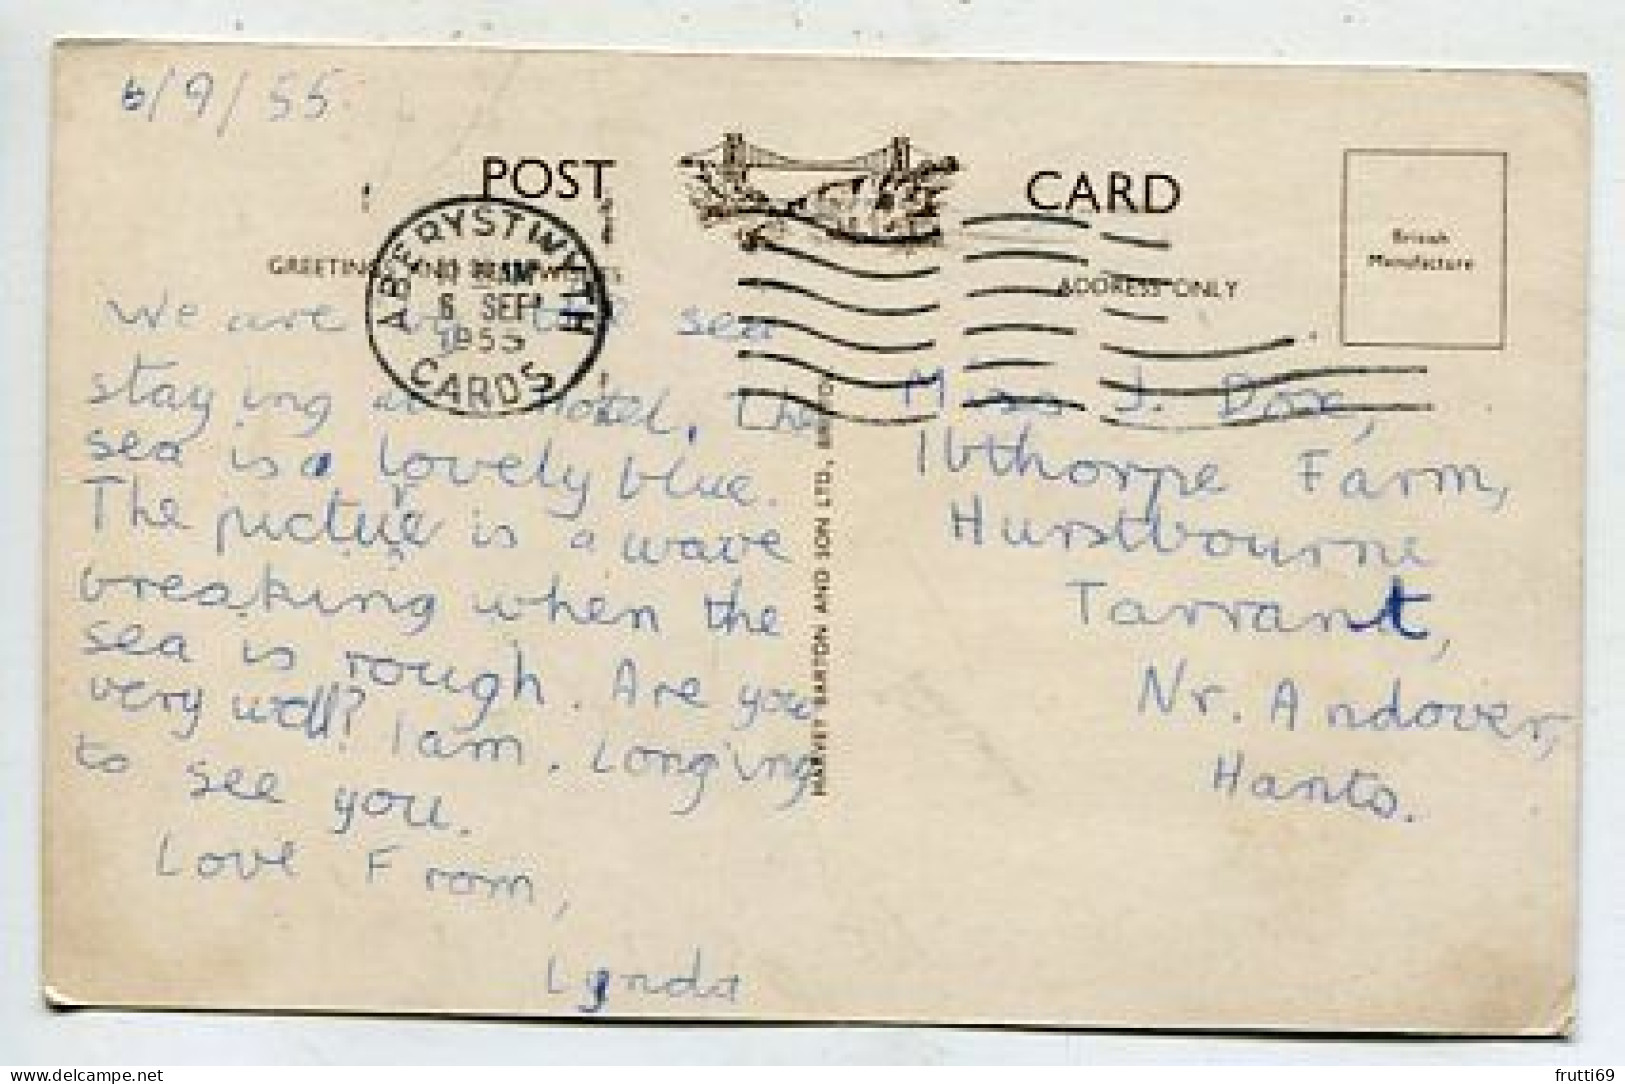 6/9/55
POST CARD
GREETINGS AND
ADDRESS ONLY
British
Manufacture
ABERYSTWYTH
AM
6 SEP
1955
CARDS
We are by the sea
staying at hotel, The
sea is a lovely blue.
The picture is a wave
breaking when the
sea is rough. Are you
very well? I am. Longing
to see you.
Love From,
Lynda
HARVEY BARTON AND SON LTD., BRISTOL
Miss J. Dox,
Ibthorpe Farm,
Hurstbourne
Tarrant,
Nr. Andover,
Hants.
frutti69